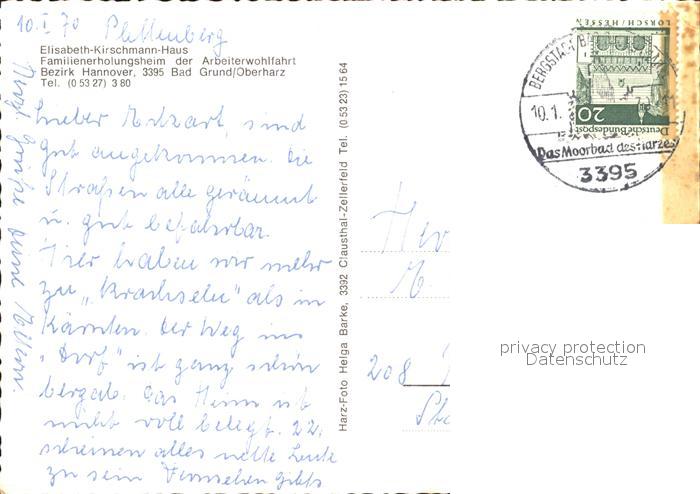 10. I. 70 Plettenberg
Elisabeth-Kirschmann-Haus
Familienerholungsheim der Arbeiterwohlfahrt
Bezirk Hannover, 3395 Bad Grund/Oberharz
Tel. (0 53 27) 3 80
Lieber Mitzart, sind
gut angekommen. Die
Straßen alle geräumt
u. gut befahrbar.
Hier haben wir mehr
zu „Krachseln" als in
Kärnten. Der Weg ins
„Dorf" ist ganz schön
bergab. Das Heim ist
nicht voll belegt. 22,
scheinen alles nette Leute
zu sein Fernsehen gibts
Grüße deine
Harz-Foto Helga Barke, 3392 Clausthal-Zellerfeld Tel. (0 53 23) 15 64
LORSCH/HESSEN
20
Deutsche Bundespost
BERGSTADT BAD
10.1.
Das Moorbad des Harzes
3395
Her
M.
208
privacy protection
Datenschutz